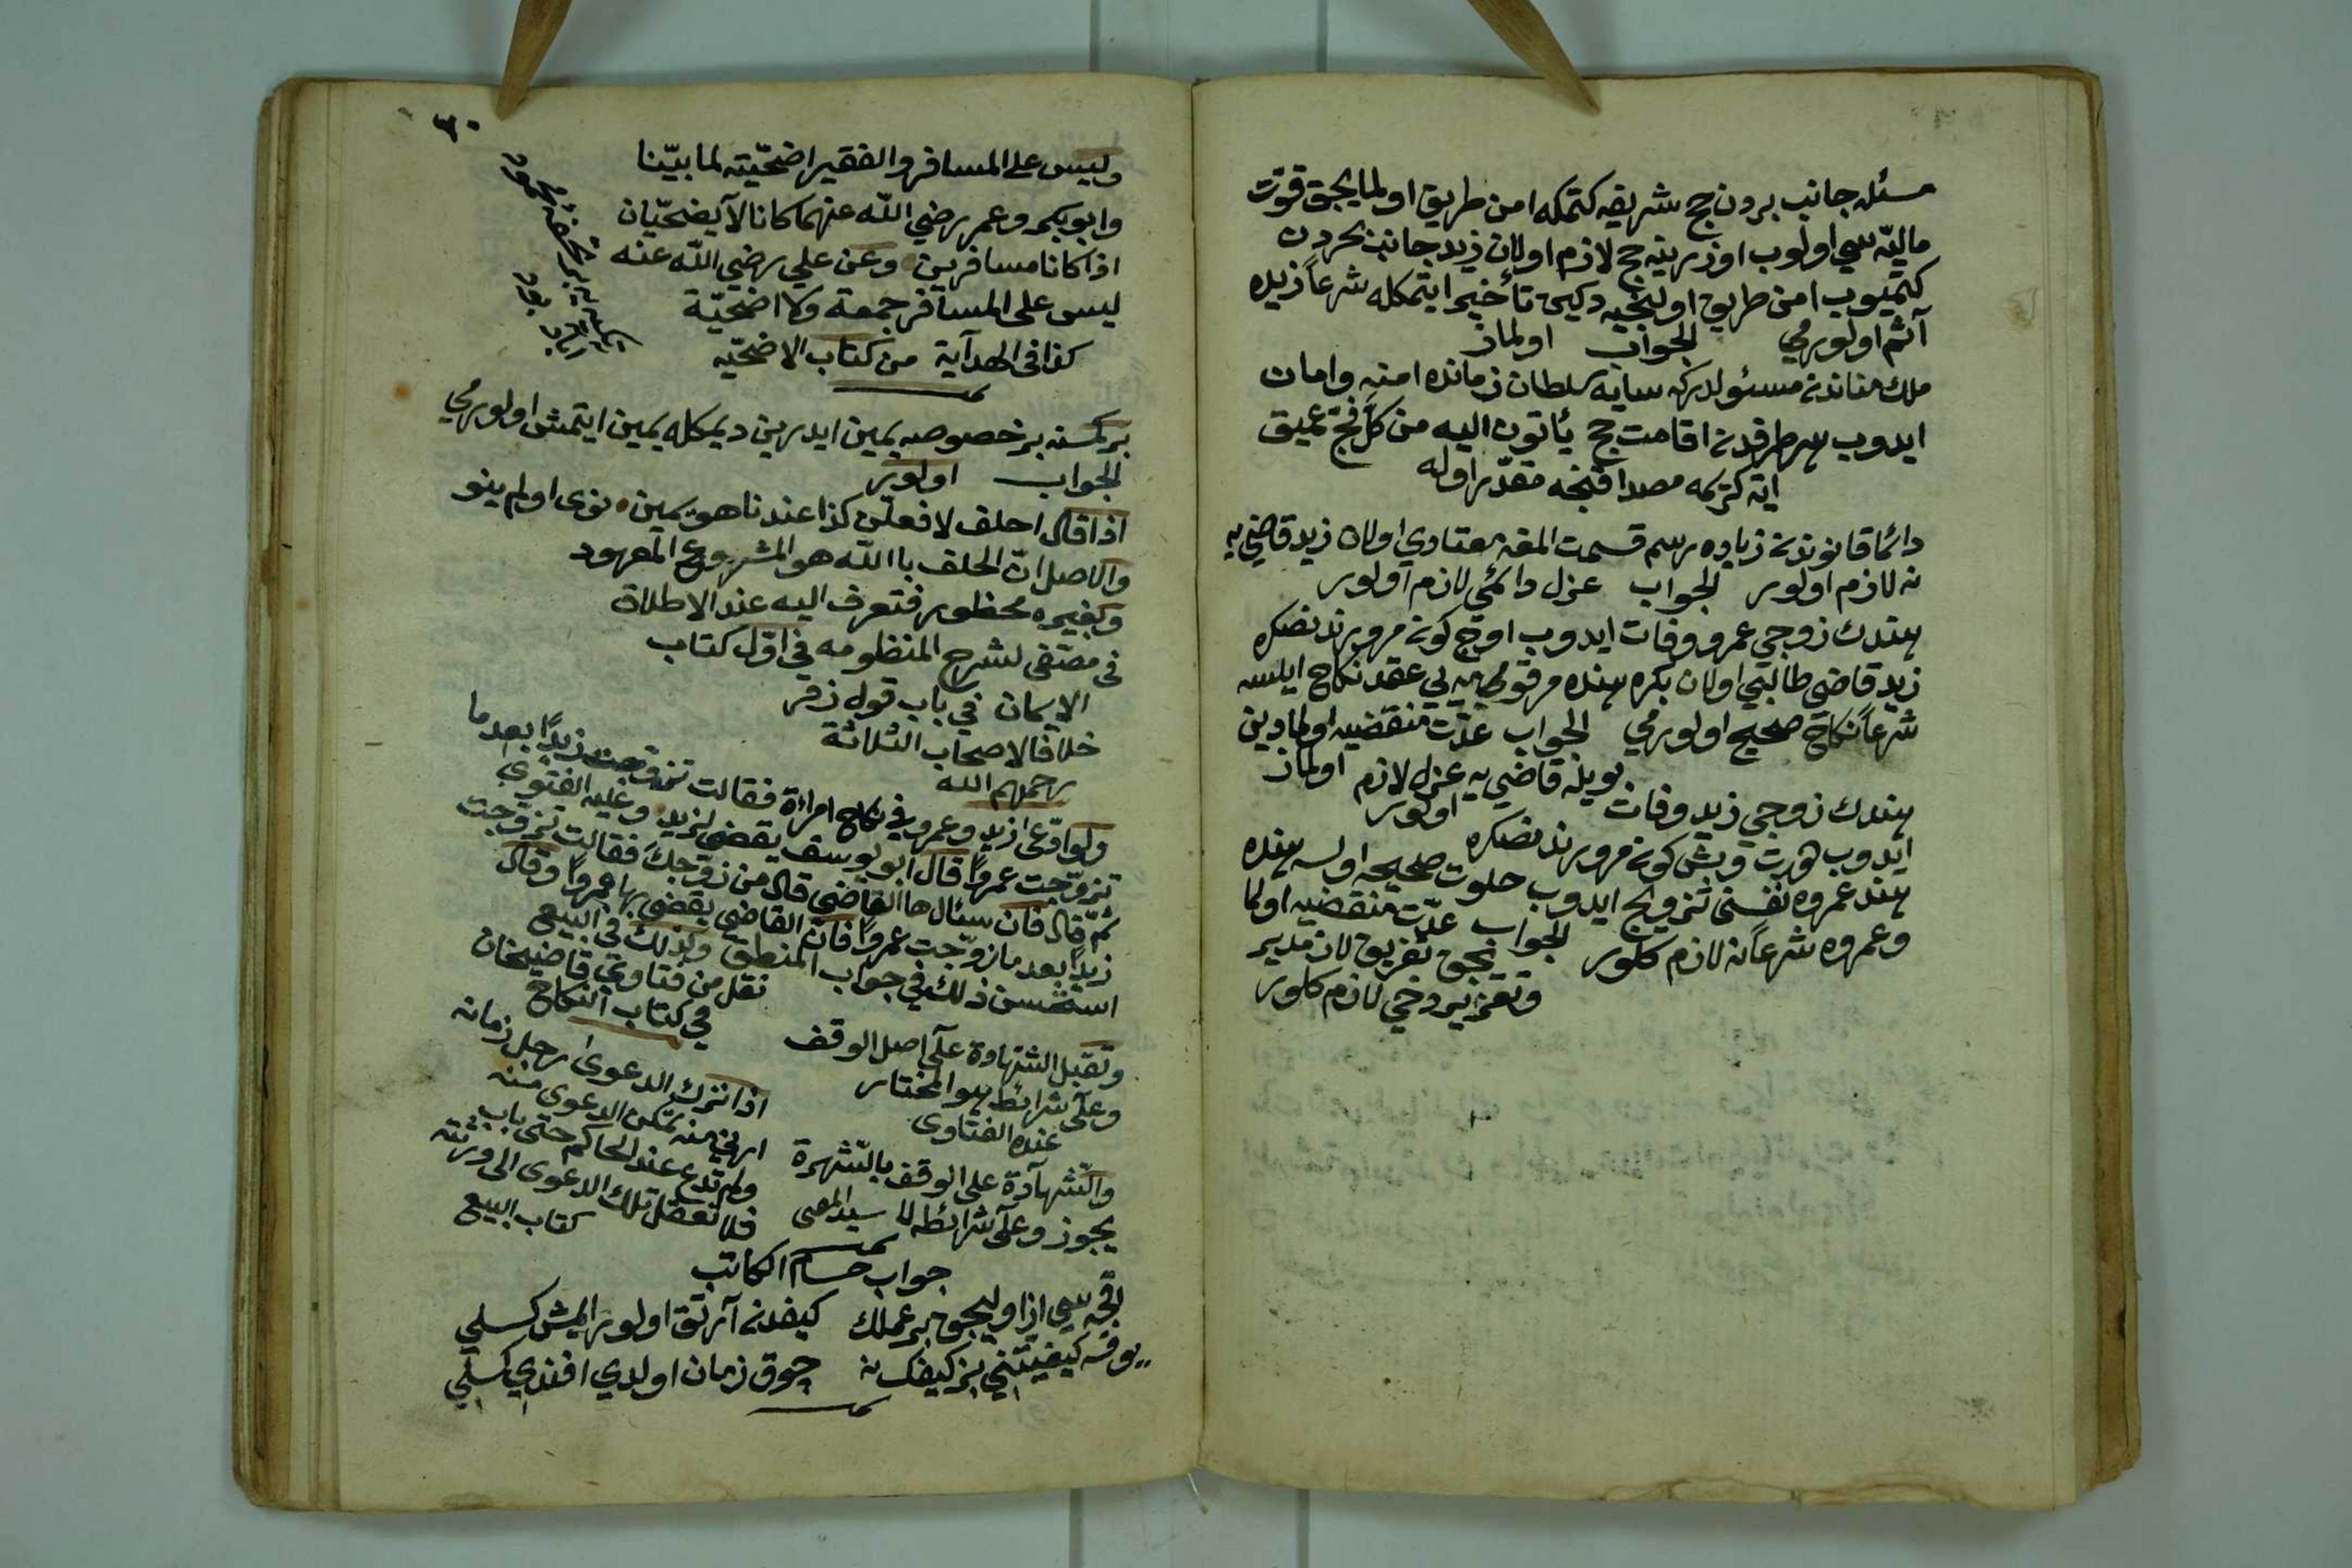 مسئله جانب بردن حج شريفه كتمكه امن طريق اولمايجق قوت
ماليه سى اولوب اوزرينه حج لازم اولان زيد جانب بحردن
كتميوب امن طريق اولنجيه دكين تأخير ايتمكله شرعاً زيده
آثم اولورمي الجواب اولماز
ملك منانده مسئولدركه سايه سلطان زمانده امنه وامان
ايدوب هر طرفدن اقامت حج يأتون اليه من كل فج عميق
ايه كريمه مصداقنجه مقدر اوله
دائما قانوندن زياده رسم قسمت المغه معتادي اولان زيد قاضي يه
نه لازم اولور الجواب عزل دائمي لازم اولور
هندك زوجي عمرو وفات ايدوب اوچ كون مرورندنصكره
زيد قاضي طالبي اولان بكره هنده مرقومه يي عقد نكاح ايلسه
شرعاً نكاح صحيح اولورمي الجواب عدّت منقضيه اولمادين اولماز
بويله قاضي يه عزل لازم اولور
هندك زوجي زيد وفات
ايدوب قورت وبش كون مرورندنصكره
هند عمروه نفسنى تزويج ايدوب خلوت صحيحه اولسه هنده
وعمروه شرعاً نه لازم كلور الجواب عدّت منقضيه اولما
ينجق تفريق لازمدير
وتعزير دخي لازم كلور
٦٠
وليس على المسافر والفقير اضحيّته لما بيّنا
وابوبكر وعمر رضي الله عنهما كانا لا يضحيّان
اذا كانا مسافرين وعن علي رضي الله عنه
ليس على المسافر جمعة ولا اضحيّة
كذا فى الهداية من كتاب الاضحيّه
بركسنه برخصوصه يمين ايدرين ديمكله يمين ايتمش اولورمي
الجواب اولور
اذا قال احلف لافعلن كذا عندنا هو يمين نوى اولم ينو
والاصل انّ الحلف باالله هو المشروع المعهود
وبغيره محظور فتعرف اليه عند الاطلاق
فى مصتفى لشرح المنظومه في اوّل كتاب
الايمان في باب قول زفر
خلافا لاصحاب الثلاثة
رحمهم الله
ولو ادّعى زيد وعمرو في نكاح امراة فقالت تزوجت زيداً بعدما
تزوّجت عمرواً قال ابو يوسف يقضى لزيد وعليه الفتوى
ثمّ قال فان سئال ها القاضي قال من زوّجك فقالت تزوّجت
زيداً بعد ما تزوّجت عمرواً فان القاضي يقضى بها عمرواً وقال
استحسن ذلك في جواب المنطق وكذلك فى البيع
نقل من فتاوي قاضيخان
في كتاب النكاح
وتقبل الشهادة على اصل الوقف
وعلى شرائط هو المختار
عنده الفتاوى
والشهادة على الوقف بالشهرة
يجوز وعلى شرائطه لا
اذا ترك الدعوى رجل زمانه
منه تمكن الدعوى منه
ولم يدع عند الحاكم حتى
فلا تعضل تلك الدعوى الى ورثته
كتاب البيع
جواب حسام الكاتب
اقچه سى از اوليجق بر عملك كيفدنه آرتق اولور ايمش كسلي
يوقسه كيفيتنى بز كيفك نه چوق زمان اولدي افندي كسلي